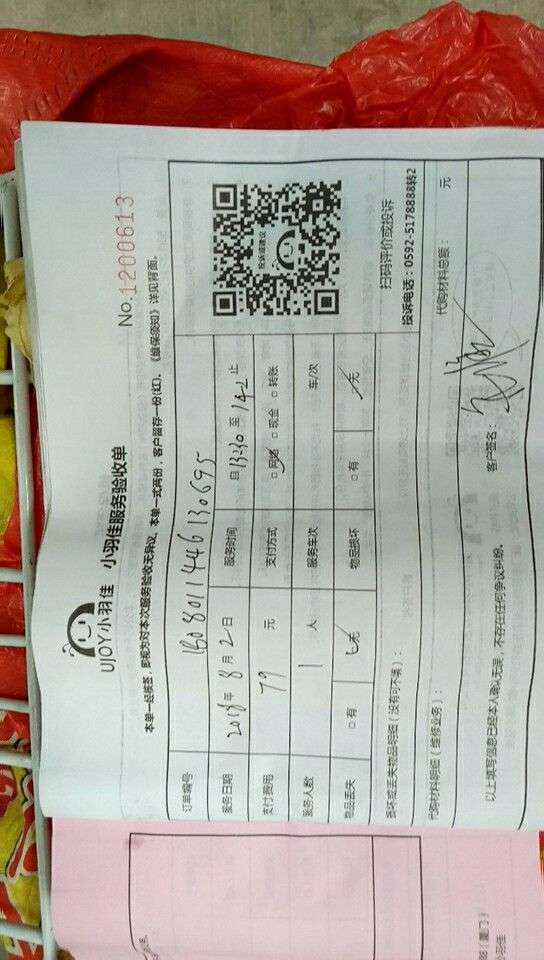 UJOY小羽佳 小羽佳服务验收单
No.1200613
本单一经核签，即视为对本次服务验收无异议。本单一式两份，客户留存一份(红)。《维保须知》详见背面。
订单编号 1808011446130695
服务日期 2018年8月2日 服务时间 自13:30至 止
支付费用 79元 支付方式 □网络 □现金 □转账
服务人数 1人 服务车次 车/次
物品丢失 □有 □无 物品损坏 □有 □无
投诉或建议
扫码评价或投诉
投诉电话：0592-5178888转2
损坏或丢失物品明细（没有可不填）：
代购材料明细（维修业务）： 代购材料总额： 元
以上填写信息已经本人确认无误，不存在任何争议纠纷。 客户签名：
88（厦门
小羽佳